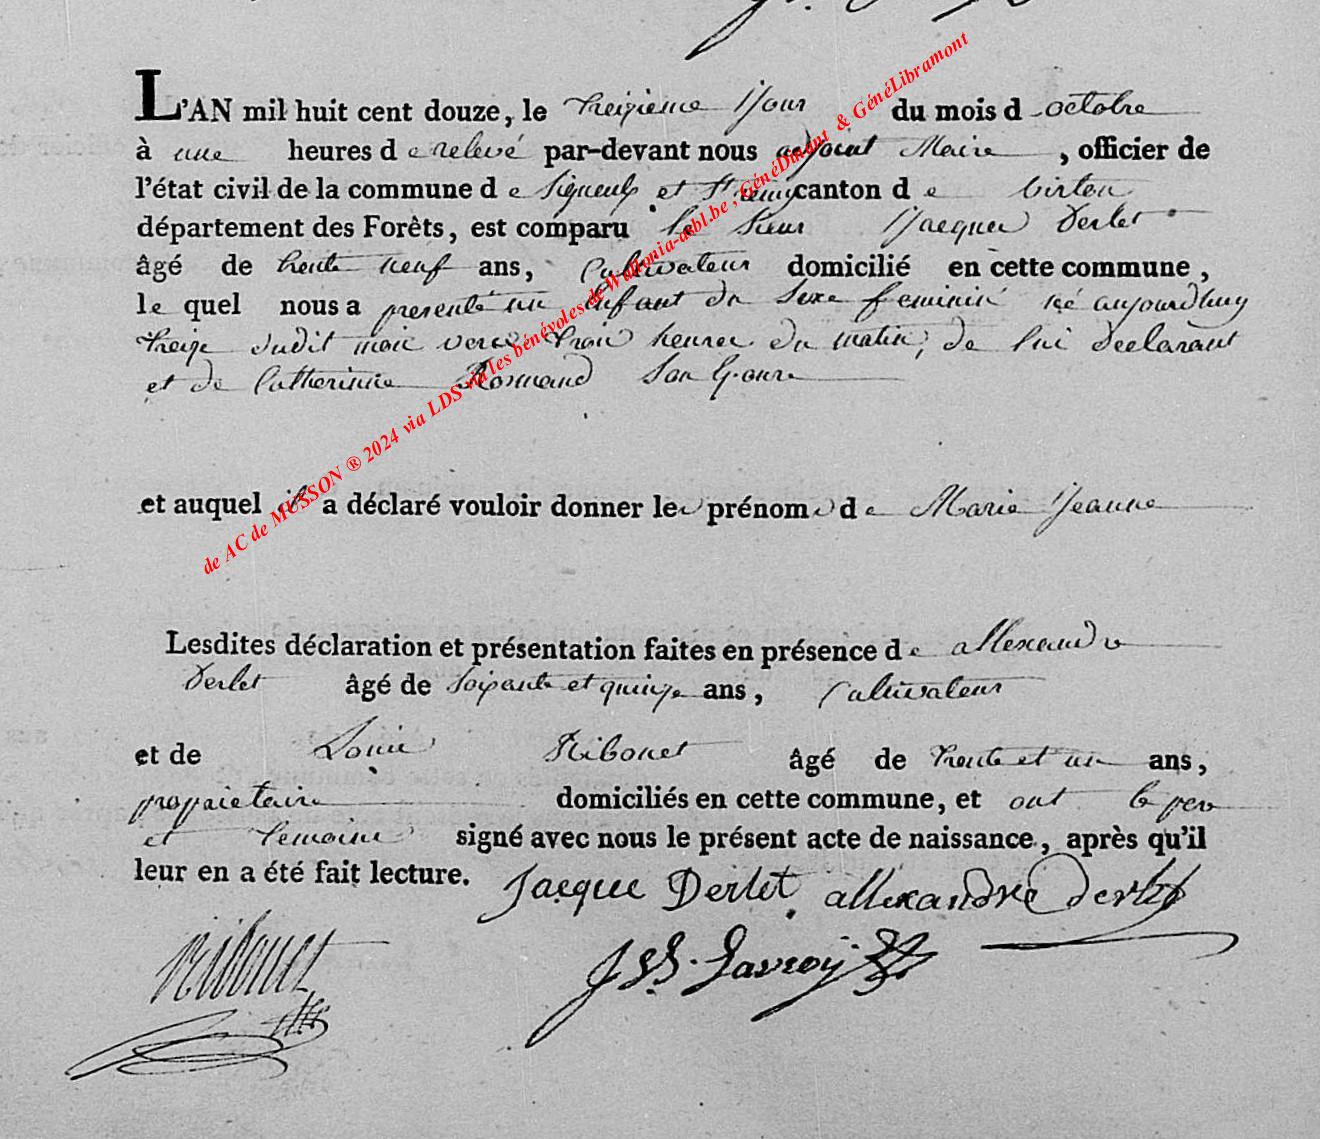 L'AN mil huit cent douze, le treizieme Jour du mois d octobre
à une heures d e relevé par-devant nous adjoint Maire , officier de
l'état civil de la commune d e Signeulx et St remy canton d e virton
département des Forêts, est comparu le Sieur Jacques Derlet
âgé de trente neuf ans, Cultivateur domicilié en cette commune,
le quel nous a presenté un Enfant du Sexe feminin né aujourdhuy
treize dudit mois vers trois heures du matin, de lui declarant
et de Catherinne Son Epouse
et auquel il a déclaré vouloir donner les prénoms d e Marie Jeanne
Lesdites déclaration et présentation faites en présence d e allexandre
Derlet âgé de Soixante et quinze ans, Cultivateur
et de Louis Ribonet âgé de trente et un ans,
proprietaire domiciliés en cette commune, et ont le pere
et temoins signé avec nous le présent acte de naissance, après qu'il
leur en a été fait lecture.
Jacque Derlet allexandre derlet
ribonet
de AC de MUSSON ® 2024 via LDS via les bénévoles de Wallonia-asbl.be , GénéDinant & GénéLibramont